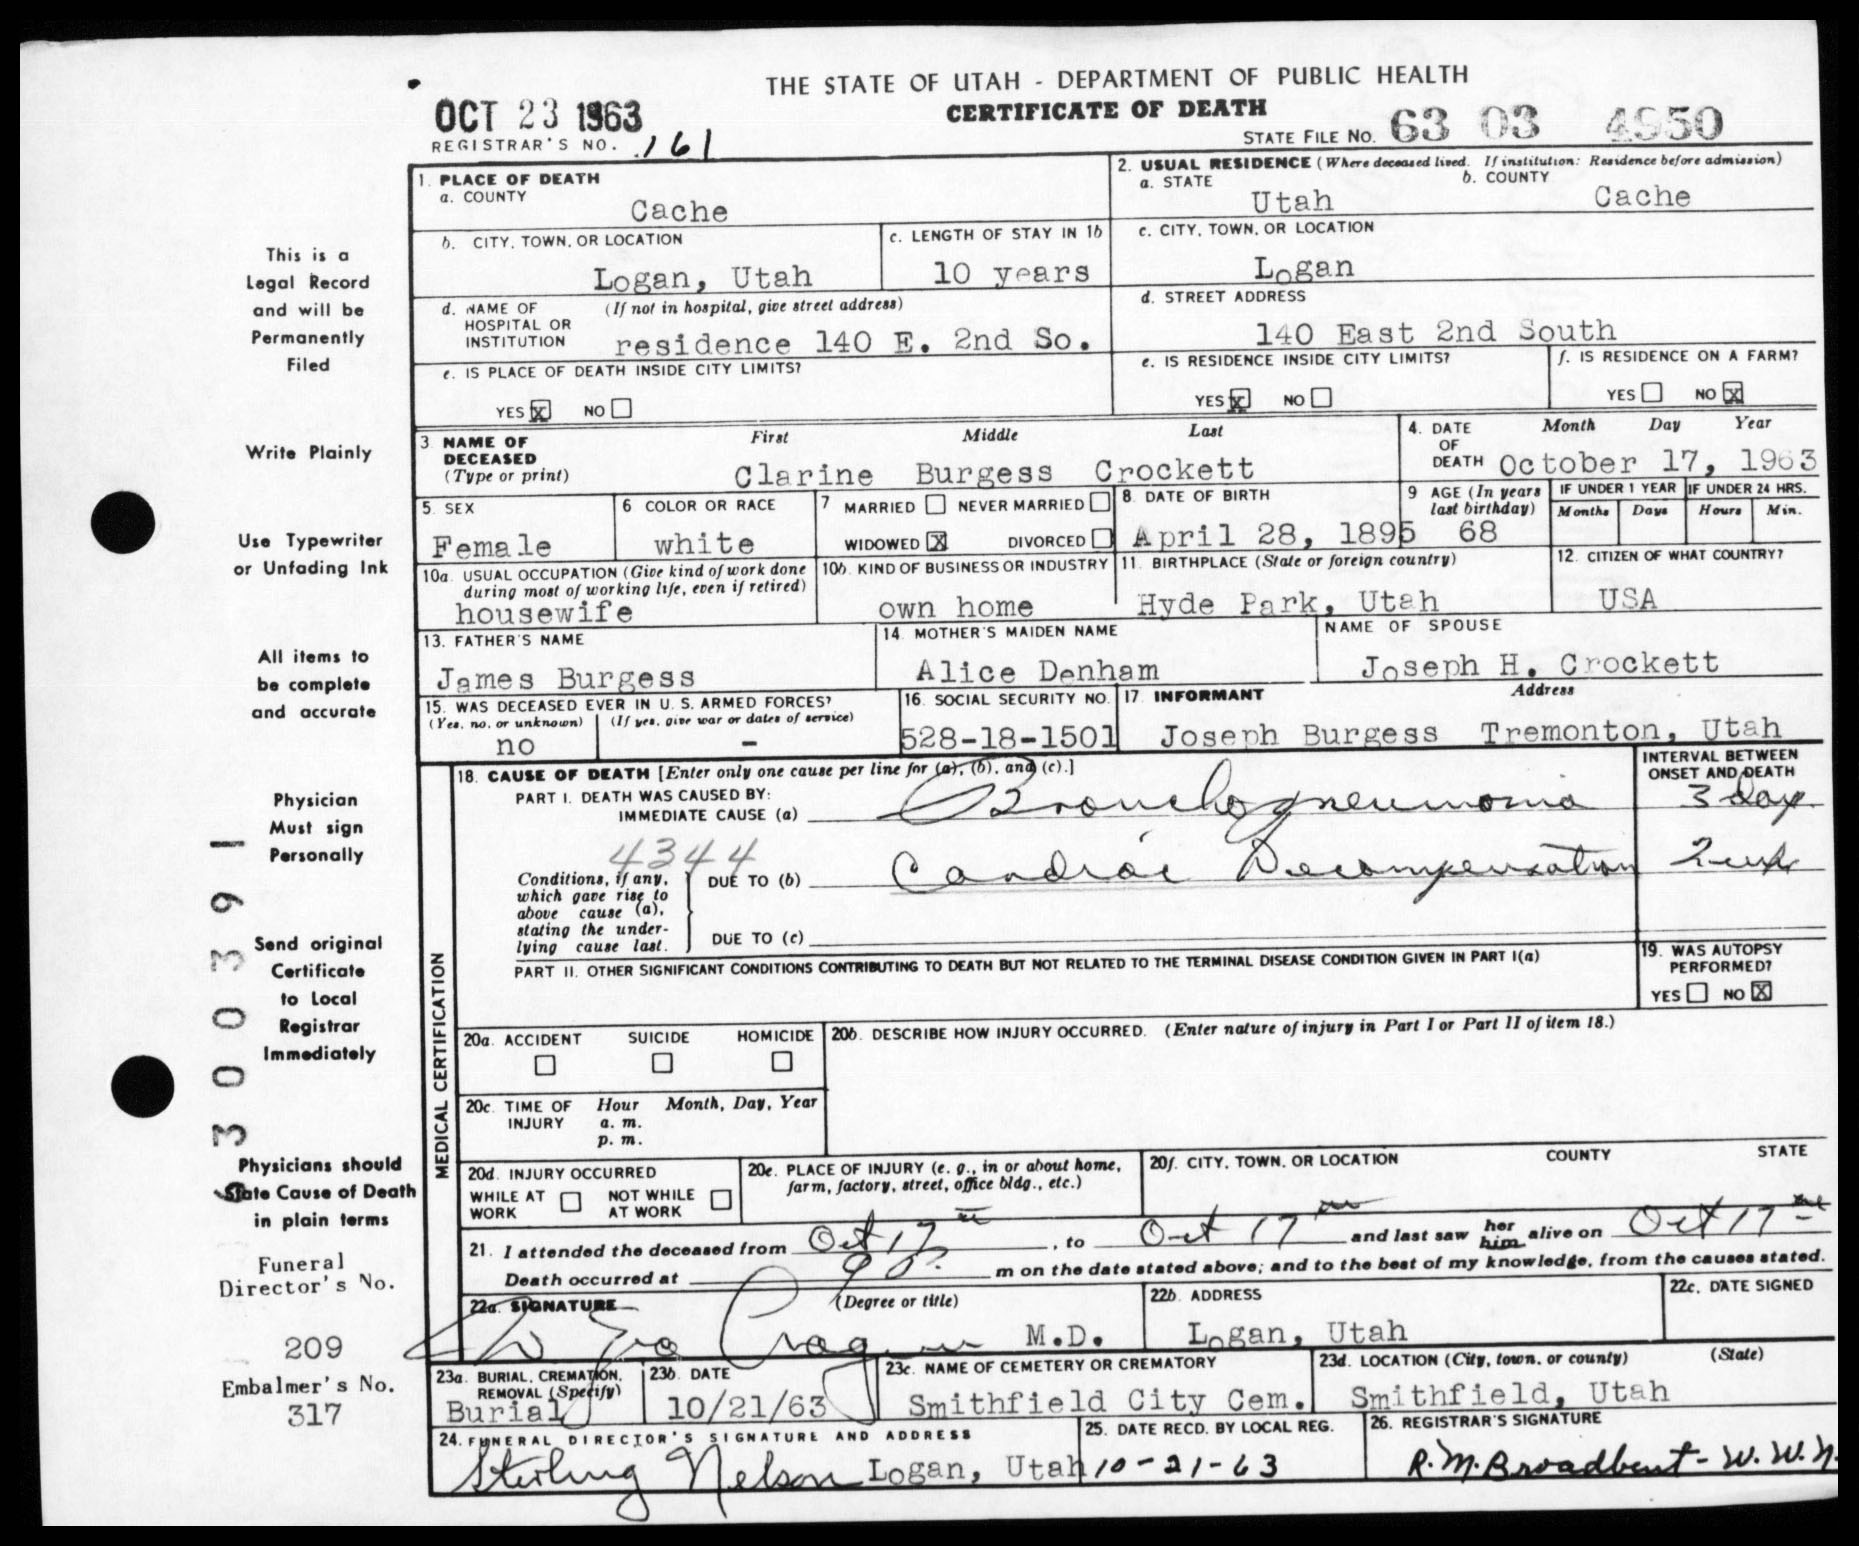 THE STATE OF UTAH - DEPARTMENT OF PUBLIC HEALTH
CERTIFICATE OF DEATH
OCT 23 1963
REGISTRAR'S NO. 161
STATE FILE NO. 63 03 4950
1. PLACE OF DEATH
a. COUNTY
Cache
2. USUAL RESIDENCE (Where deceased lived. If institution: Residence before admission)
a. STATE b. COUNTY
Utah Cache
b. CITY, TOWN, OR LOCATION
Logan, Utah
c. LENGTH OF STAY IN 1b
10 years
c. CITY, TOWN, OR LOCATION
Logan
d. NAME OF HOSPITAL OR INSTITUTION (If not in hospital, give street address)
residence 140 E. 2nd So.
d. STREET ADDRESS
140 East 2nd South
e. IS PLACE OF DEATH INSIDE CITY LIMITS?
YES x NO
e. IS RESIDENCE INSIDE CITY LIMITS?
YES x NO
f. IS RESIDENCE ON A FARM?
YES NO x
3 NAME OF DECEASED (Type or print)
First Middle Last
Clarine Burgess Crockett
4. DATE OF DEATH
Month Day Year
October 17, 1963
5. SEX
Female
6 COLOR OR RACE
white
7 MARRIED NEVER MARRIED
WIDOWED X DIVORCED
8. DATE OF BIRTH
April 28, 1895
9 AGE (In years last birthday)
68
IF UNDER 1 YEAR IF UNDER 24 HRS.
Months Days Hours Min.
10a. USUAL OCCUPATION (Give kind of work done during most of working life, even if retired)
housewife
10b. KIND OF BUSINESS OR INDUSTRY
own home
11. BIRTHPLACE (State or foreign country)
Hyde Park, Utah
12. CITIZEN OF WHAT COUNTRY?
USA
13. FATHER'S NAME
James Burgess
14. MOTHER'S MAIDEN NAME
Alice Denham
NAME OF SPOUSE
Joseph H. Crockett
15. WAS DECEASED EVER IN U. S. ARMED FORCES?
(Yes, no, or unknown) (If yes, give war or dates of service)
no -
16. SOCIAL SECURITY NO.
528-18-1501
17. INFORMANT Address
Joseph Burgess Tremonton, Utah
MEDICAL CERTIFICATION
18. CAUSE OF DEATH [Enter only one cause per line for (a), (b), and (c).]
PART I. DEATH WAS CAUSED BY:
IMMEDIATE CAUSE (a) Bronchopneumonia
INTERVAL BETWEEN ONSET AND DEATH
3 day
4344
Conditions, if any, which gave rise to above cause (a), stating the underlying cause last.
DUE TO (b) Cardiac Decompensation
2 wk
DUE TO (c)
PART II. OTHER SIGNIFICANT CONDITIONS CONTRIBUTING TO DEATH BUT NOT RELATED TO THE TERMINAL DISEASE CONDITION GIVEN IN PART I(a)
19. WAS AUTOPSY PERFORMED?
YES NO X
20a. ACCIDENT SUICIDE HOMICIDE
20b. DESCRIBE HOW INJURY OCCURRED. (Enter nature of injury in Part I or Part II of item 18.)
20c. TIME OF INJURY Hour Month, Day, Year
a. m.
p. m.
20d. INJURY OCCURRED
WHILE AT WORK NOT WHILE AT WORK
20e. PLACE OF INJURY (e. g., in or about home, farm, factory, street, office bldg., etc.)
20f. CITY, TOWN, OR LOCATION COUNTY STATE
21. I attended the deceased from Oct 17 , to Oct 17 and last saw her him alive on Oct 17
Death occurred at 9 P. m on the date stated above; and to the best of my knowledge, from the causes stated.
22a. SIGNATURE (Degree or title)
M.D.
22b. ADDRESS
Logan, Utah
22c. DATE SIGNED
23a. BURIAL, CREMATION, REMOVAL (Specify)
Burial
23b. DATE
10/21/63
23c. NAME OF CEMETERY OR CREMATORY
Smithfield City Cem.
23d. LOCATION (City, town, or county) (State)
Smithfield, Utah
24. FUNERAL DIRECTOR'S SIGNATURE AND ADDRESS
Sterling Nelson Logan, Utah
25. DATE RECD. BY LOCAL REG.
10-21-63
26. REGISTRAR'S SIGNATURE
R.M. Broadbent - W.W.N.
This is a
Legal Record
and will be
Permanently
Filed
Write Plainly
Use Typewriter
or Unfading Ink
All items to
be complete
and accurate
Physician
Must sign
Personally
Send original
Certificate
to Local
Registrar
Immediately
Physicians should
State Cause of Death
in plain terms
Funeral
Director's No.
209
Embalmer's No.
317
3000391